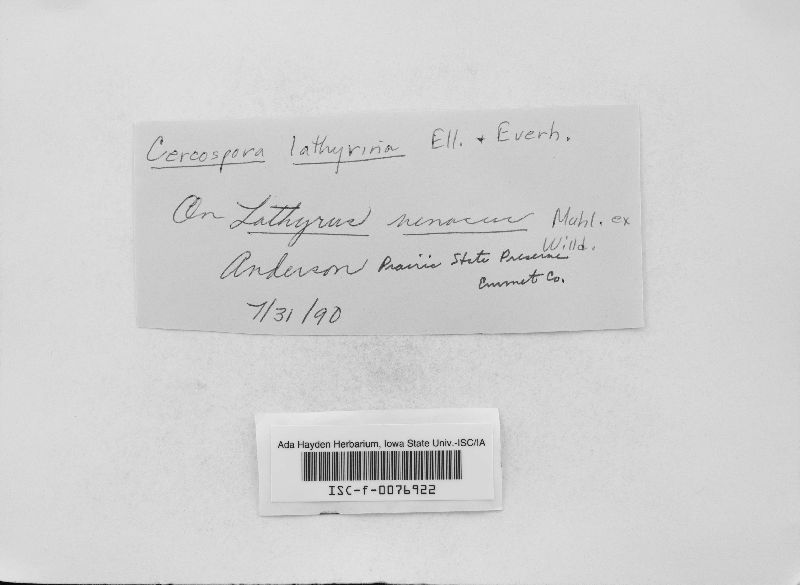 Cercospora lathyrina Ell. + Everh.
On Lathyrus venosus Muhl. ex Willd.
Anderson Prairie State Preserve
Emmet Co.
7/31/90
Ada Hayden Herbarium, Iowa State Univ.-ISC/IA
ISC-f-0076922